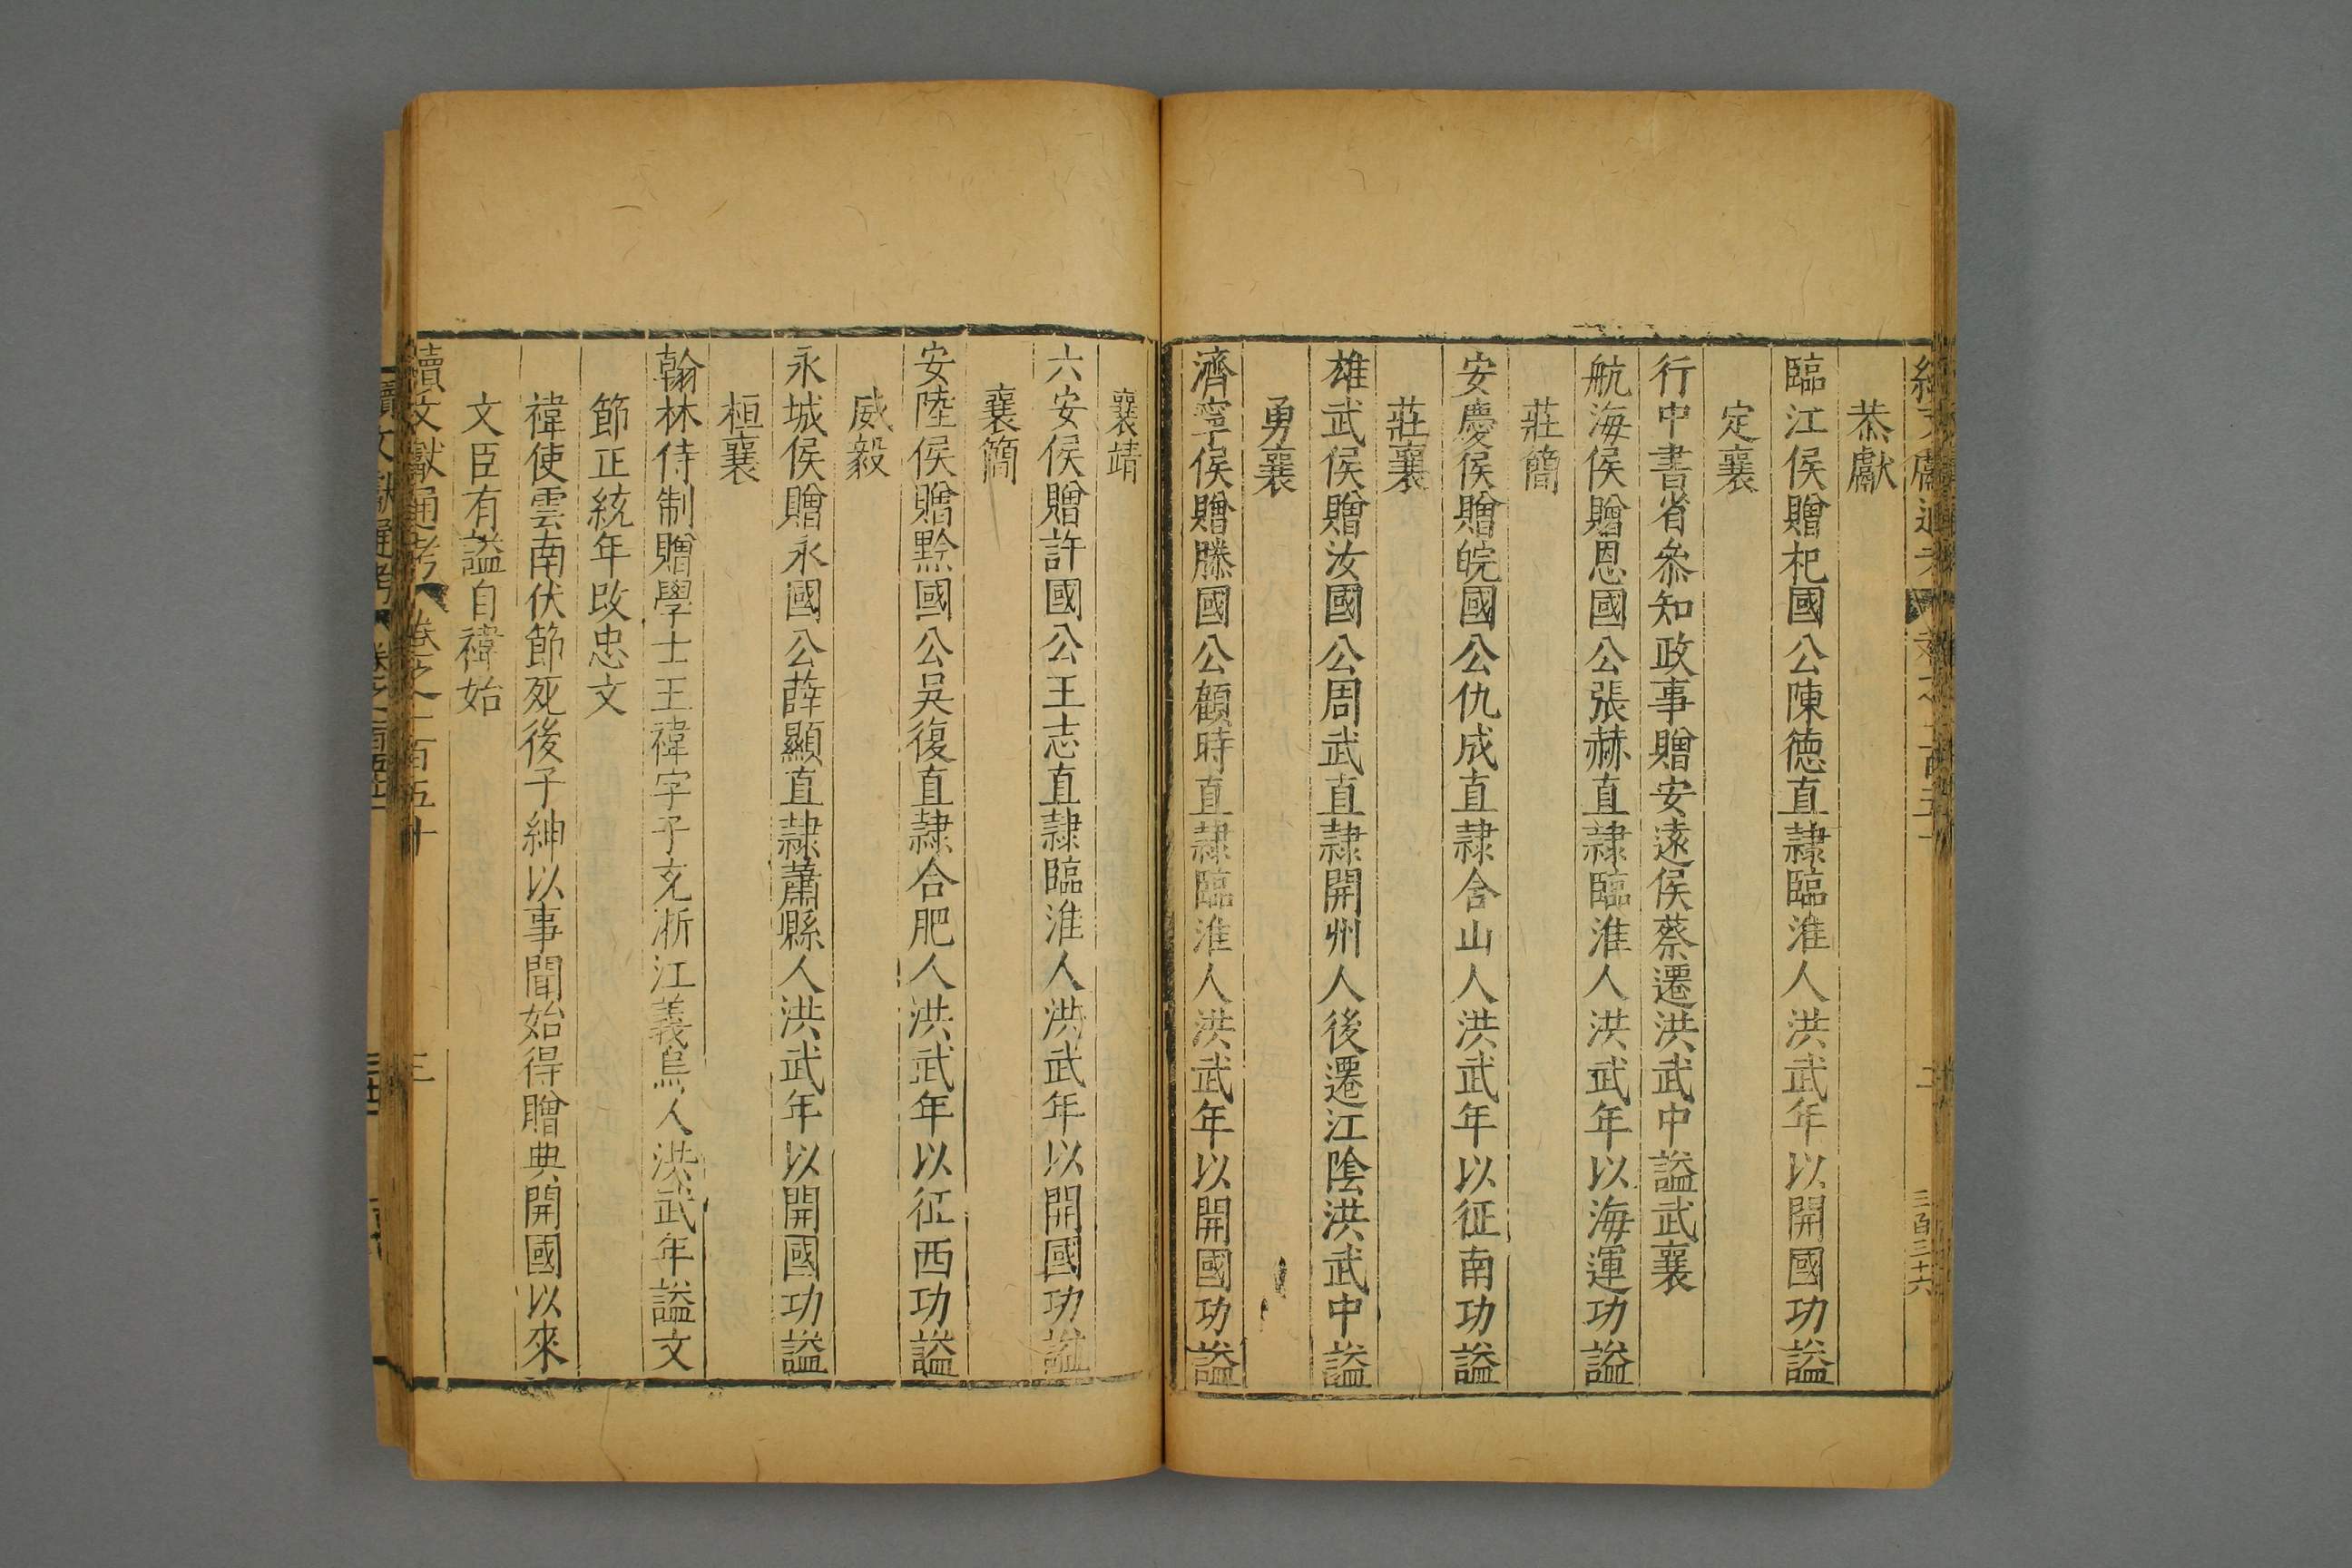 恭獻
臨江侯贈杞國公陳德直隷臨淮人洪武年以開國功謚
定襄
行中書省叅知政事贈安遠侯蔡遷洪武中謚武襄
航海侯贈恩國公張赫直隷臨淮人洪武年以海運功謚
莊簡
安慶侯贈皖國公仇成直隷含山人洪武年以征南功謚
莊襄
雄武侯贈汝國公周武直隷開州人後遷江陰洪武中謚
勇襄
濟寧侯贈滕國公顧時直隷臨淮人洪武年以開國功謚
襄靖
六安侯贈許國公王志直隷臨淮人洪武年以開國功謚
襄簡
安陸侯贈黔國公吳復直隷合肥人洪武年以征西功謚
威毅
永城侯贈永國公薛顯直隷蕭縣人洪武年以開國功謚
桓襄
翰林侍制贈學士王禕字子充浙江義烏人洪武年謚文
節正統年改忠文
禕使雲南伏節死後子紳以事聞始得贈典開國以來
文臣有謚自禕始
續文獻通考 卷之一百五十 三